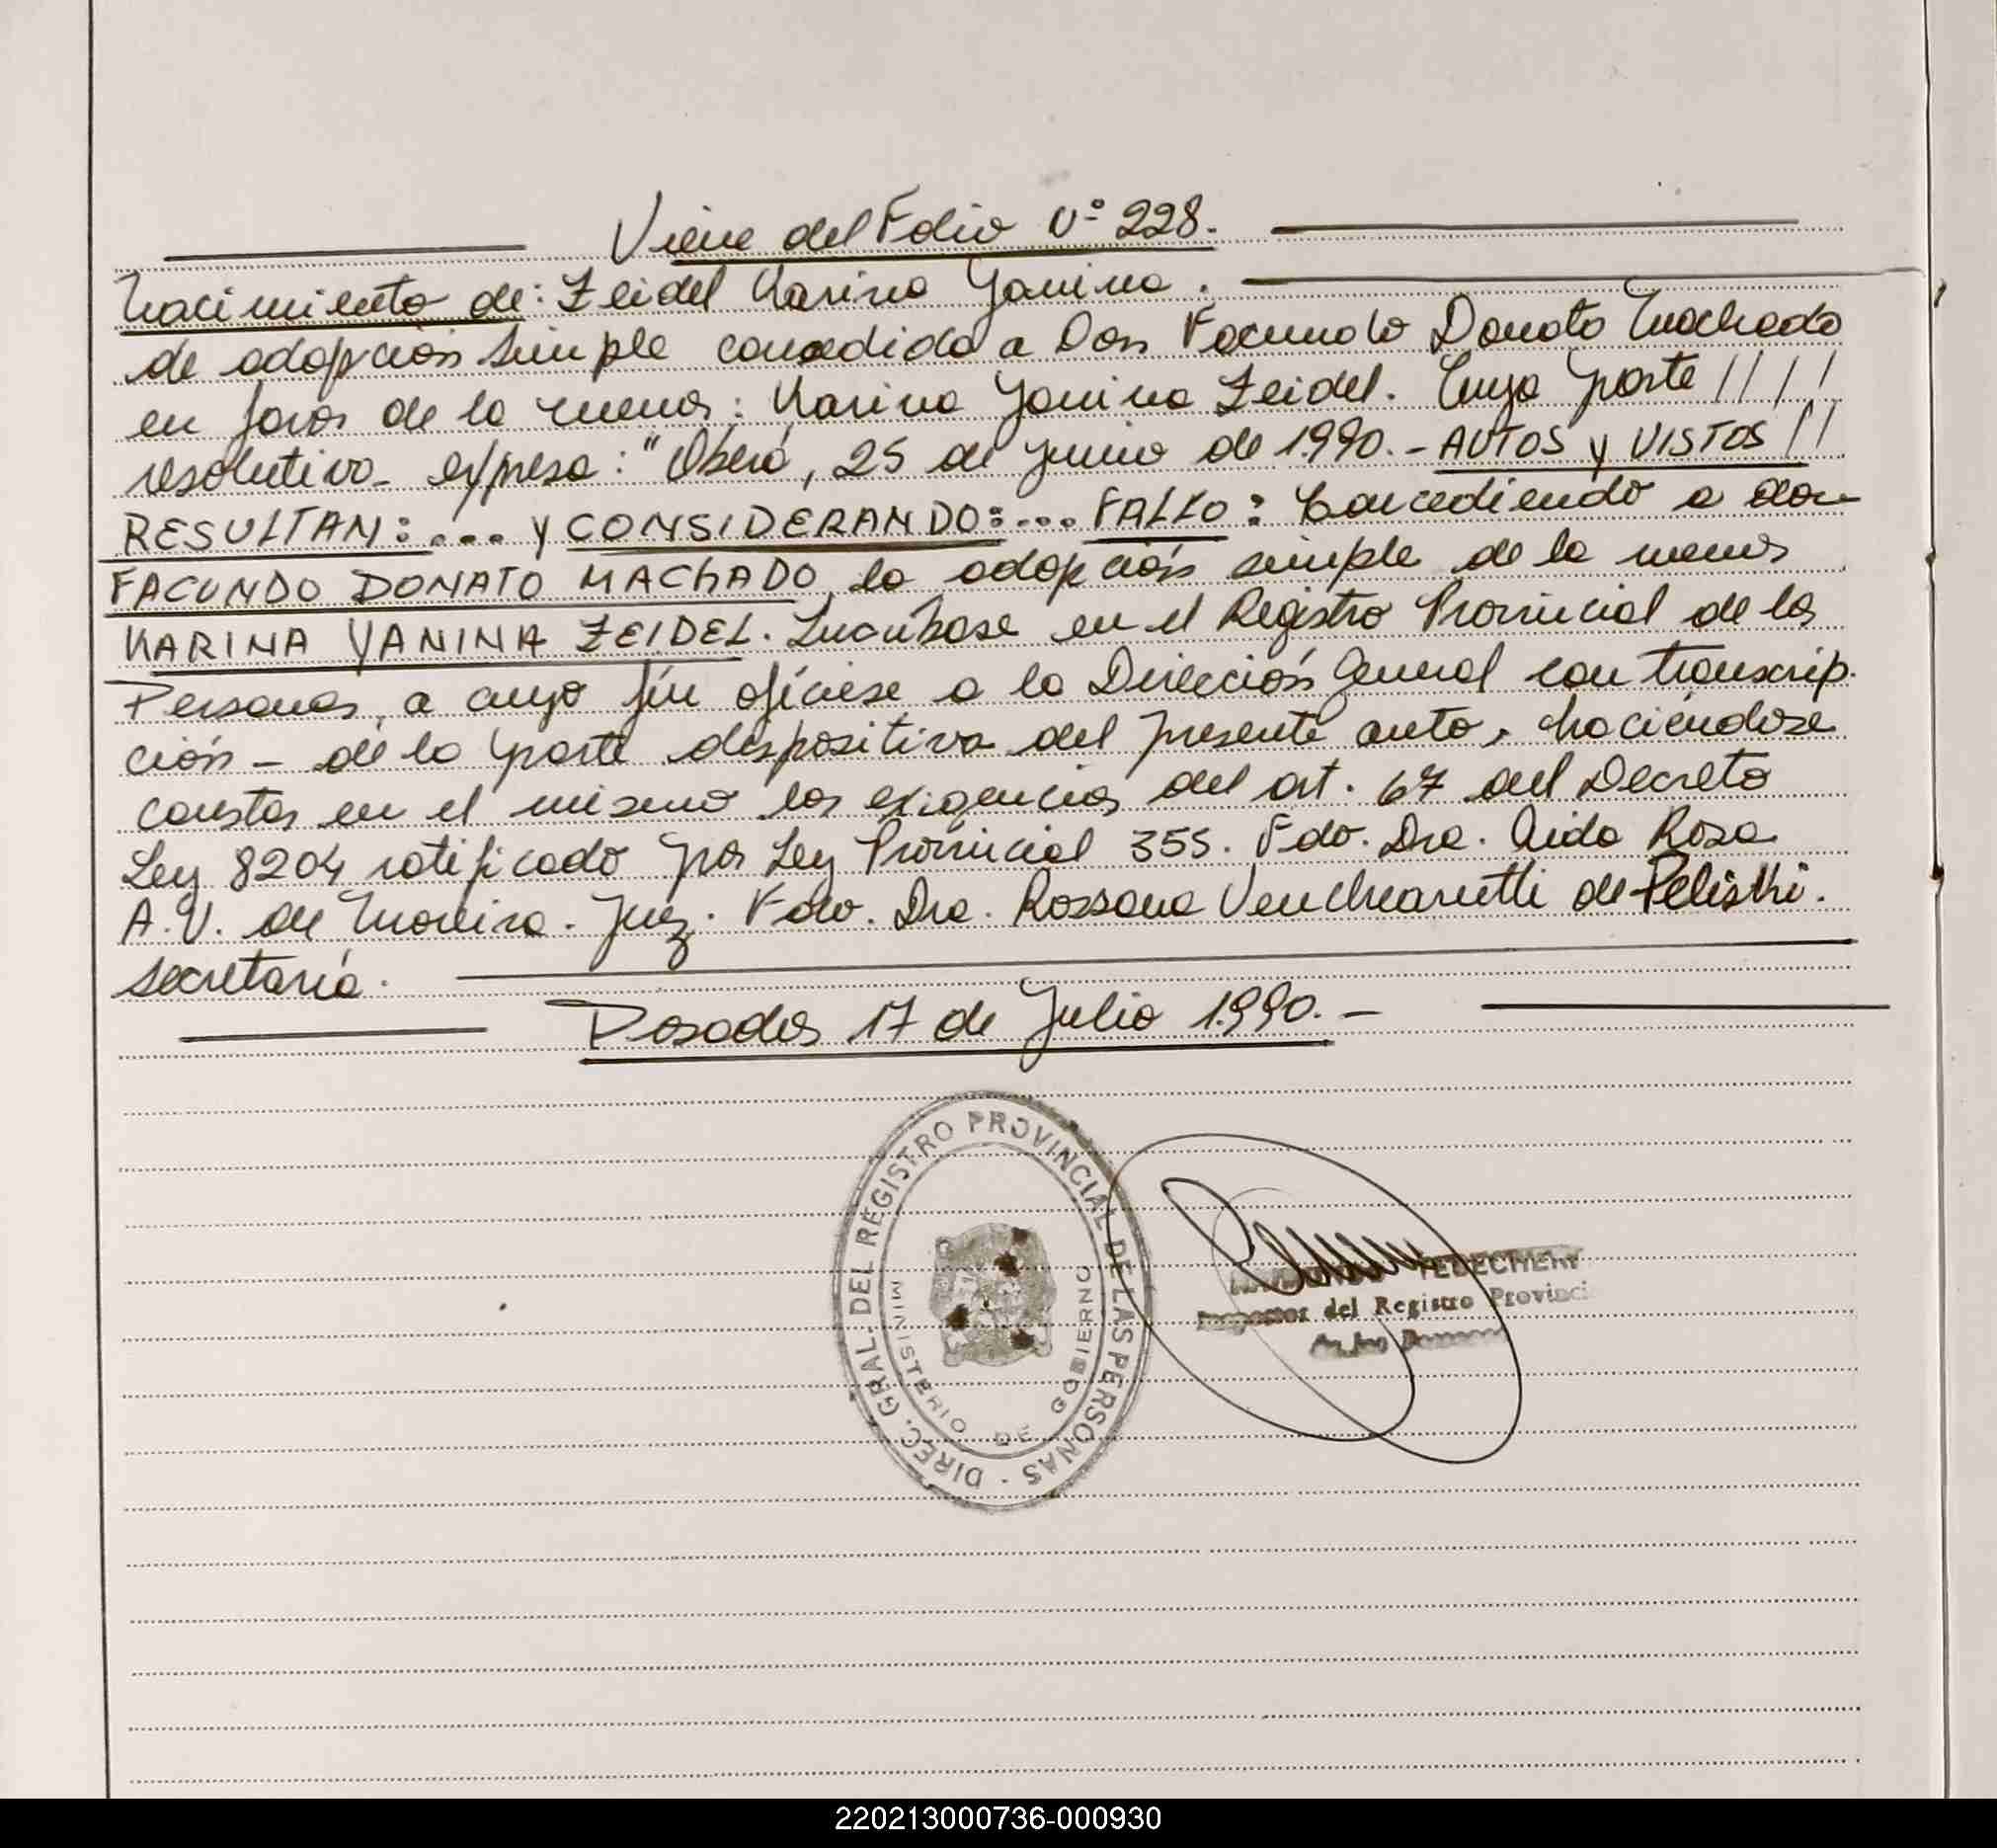 Viene del Folio Nº 228.
Nacimiento de: Zeidel Karina Yanina.
de adopción simple concedida a Don Facundo Donato Machado
en favor de la menor: Karina Yanina Zeidel. Cuya parte ////
resolutiva - expresa: "Oberá, 25 de junio de 1.990.- AUTOS y VISTOS //
RESULTAN: .... y CONSIDERANDO: .... FALLO: Concediendo a don
FACUNDO DONATO MACHADO la adopción simple de la menor
KARINA YANINA ZEIDEL. Inscríbase en el Registro Provincial de las
Personas, a cuyo fin ofíciese a la Dirección General con transcrip.
ción - de la parte dispositiva del presente auto, haciéndose
constar en el mismo las exigencias del art. 67 del Decreto
Ley 8204 ratificado por Ley Provincial 355. Fdo. Dra. Aida Rosa
A.V. de Moreira. Juez. Fdo. Dra. Rossana Venchiarutti de Peliski.
secretaria.
Posadas 17 de Julio 1.990.-
DIREC. GRAL. DEL REGISTRO PROVINCIAL DE LAS PERSONAS -
MINISTERIO DE GOBIERNO
Inspector del Registro Provinci
220213000736-000930